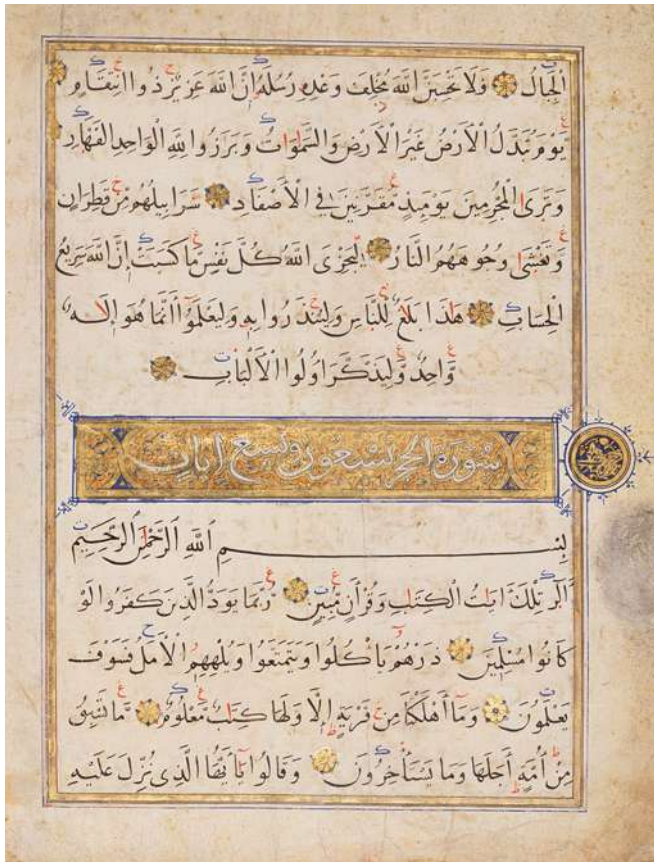 الْجِبَالُ ۝ فَلَا تَحْسَبَنَّ اللَّهَ مُخْلِفَ وَعْدِهِ رُسُلَهُ إِنَّ اللَّهَ عَزِيزٌ ذُو انْتِقَامٍ
يَوْمَ تُبَدَّلُ الْأَرْضُ غَيْرَ الْأَرْضِ وَالسَّمَوَاتُ وَبَرَزُوا لِلَّهِ الْوَاحِدِ الْقَهَّارِ
وَتَرَى الْمُجْرِمِينَ يَوْمَئِذٍ مُقَرَّنِينَ فِي الْأَصْفَادِ ۝ سَرَابِيلُهُمْ مِنْ قَطِرَانٍ
وَتَغْشَى وُجُوهَهُمُ النَّارُ ۝ لِيَجْزِيَ اللَّهُ كُلَّ نَفْسٍ مَا كَسَبَتْ إِنَّ اللَّهَ سَرِيعُ
الْحِسَابِ ۝ هَذَا بَلَاغٌ لِلنَّاسِ وَلِيُنْذَرُوا بِهِ وَلِيَعْلَمُوا أَنَّمَا هُوَ إِلَهٌ
وَاحِدٌ وَلِيَذَّكَّرَ أُولُوا الْأَلْبَابِ ۝
سورة الحجر تسعون وتسع ايات
بِسْمِ اللَّهِ الرَّحْمَنِ الرَّحِيمِ
الر تِلْكَ ايَاتُ الْكِتَابِ وَقُرْآنٍ مُبِينٍ ۝ رُبَمَا يَوَدُّ الَّذِينَ كَفَرُوا لَوْ
كَانُوا مُسْلِمِينَ ۝ ذَرْهُمْ يَأْكُلُوا وَيَتَمَتَّعُوا وَيُلْهِهِمُ الْأَمَلُ فَسَوْفَ
يَعْلَمُونَ ۝ وَمَا أَهْلَكْنَا مِنْ قَرْيَةٍ إِلَّا وَلَهَا كِتَابٌ مَعْلُومٌ ۝ مَا تَسْبِقُ
مِنْ أُمَّةٍ أَجَلَهَا وَمَا يَسْتَأْخِرُونَ ۝ وَقَالُوا يَا أَيُّهَا الَّذِي نُزِّلَ عَلَيْهِ